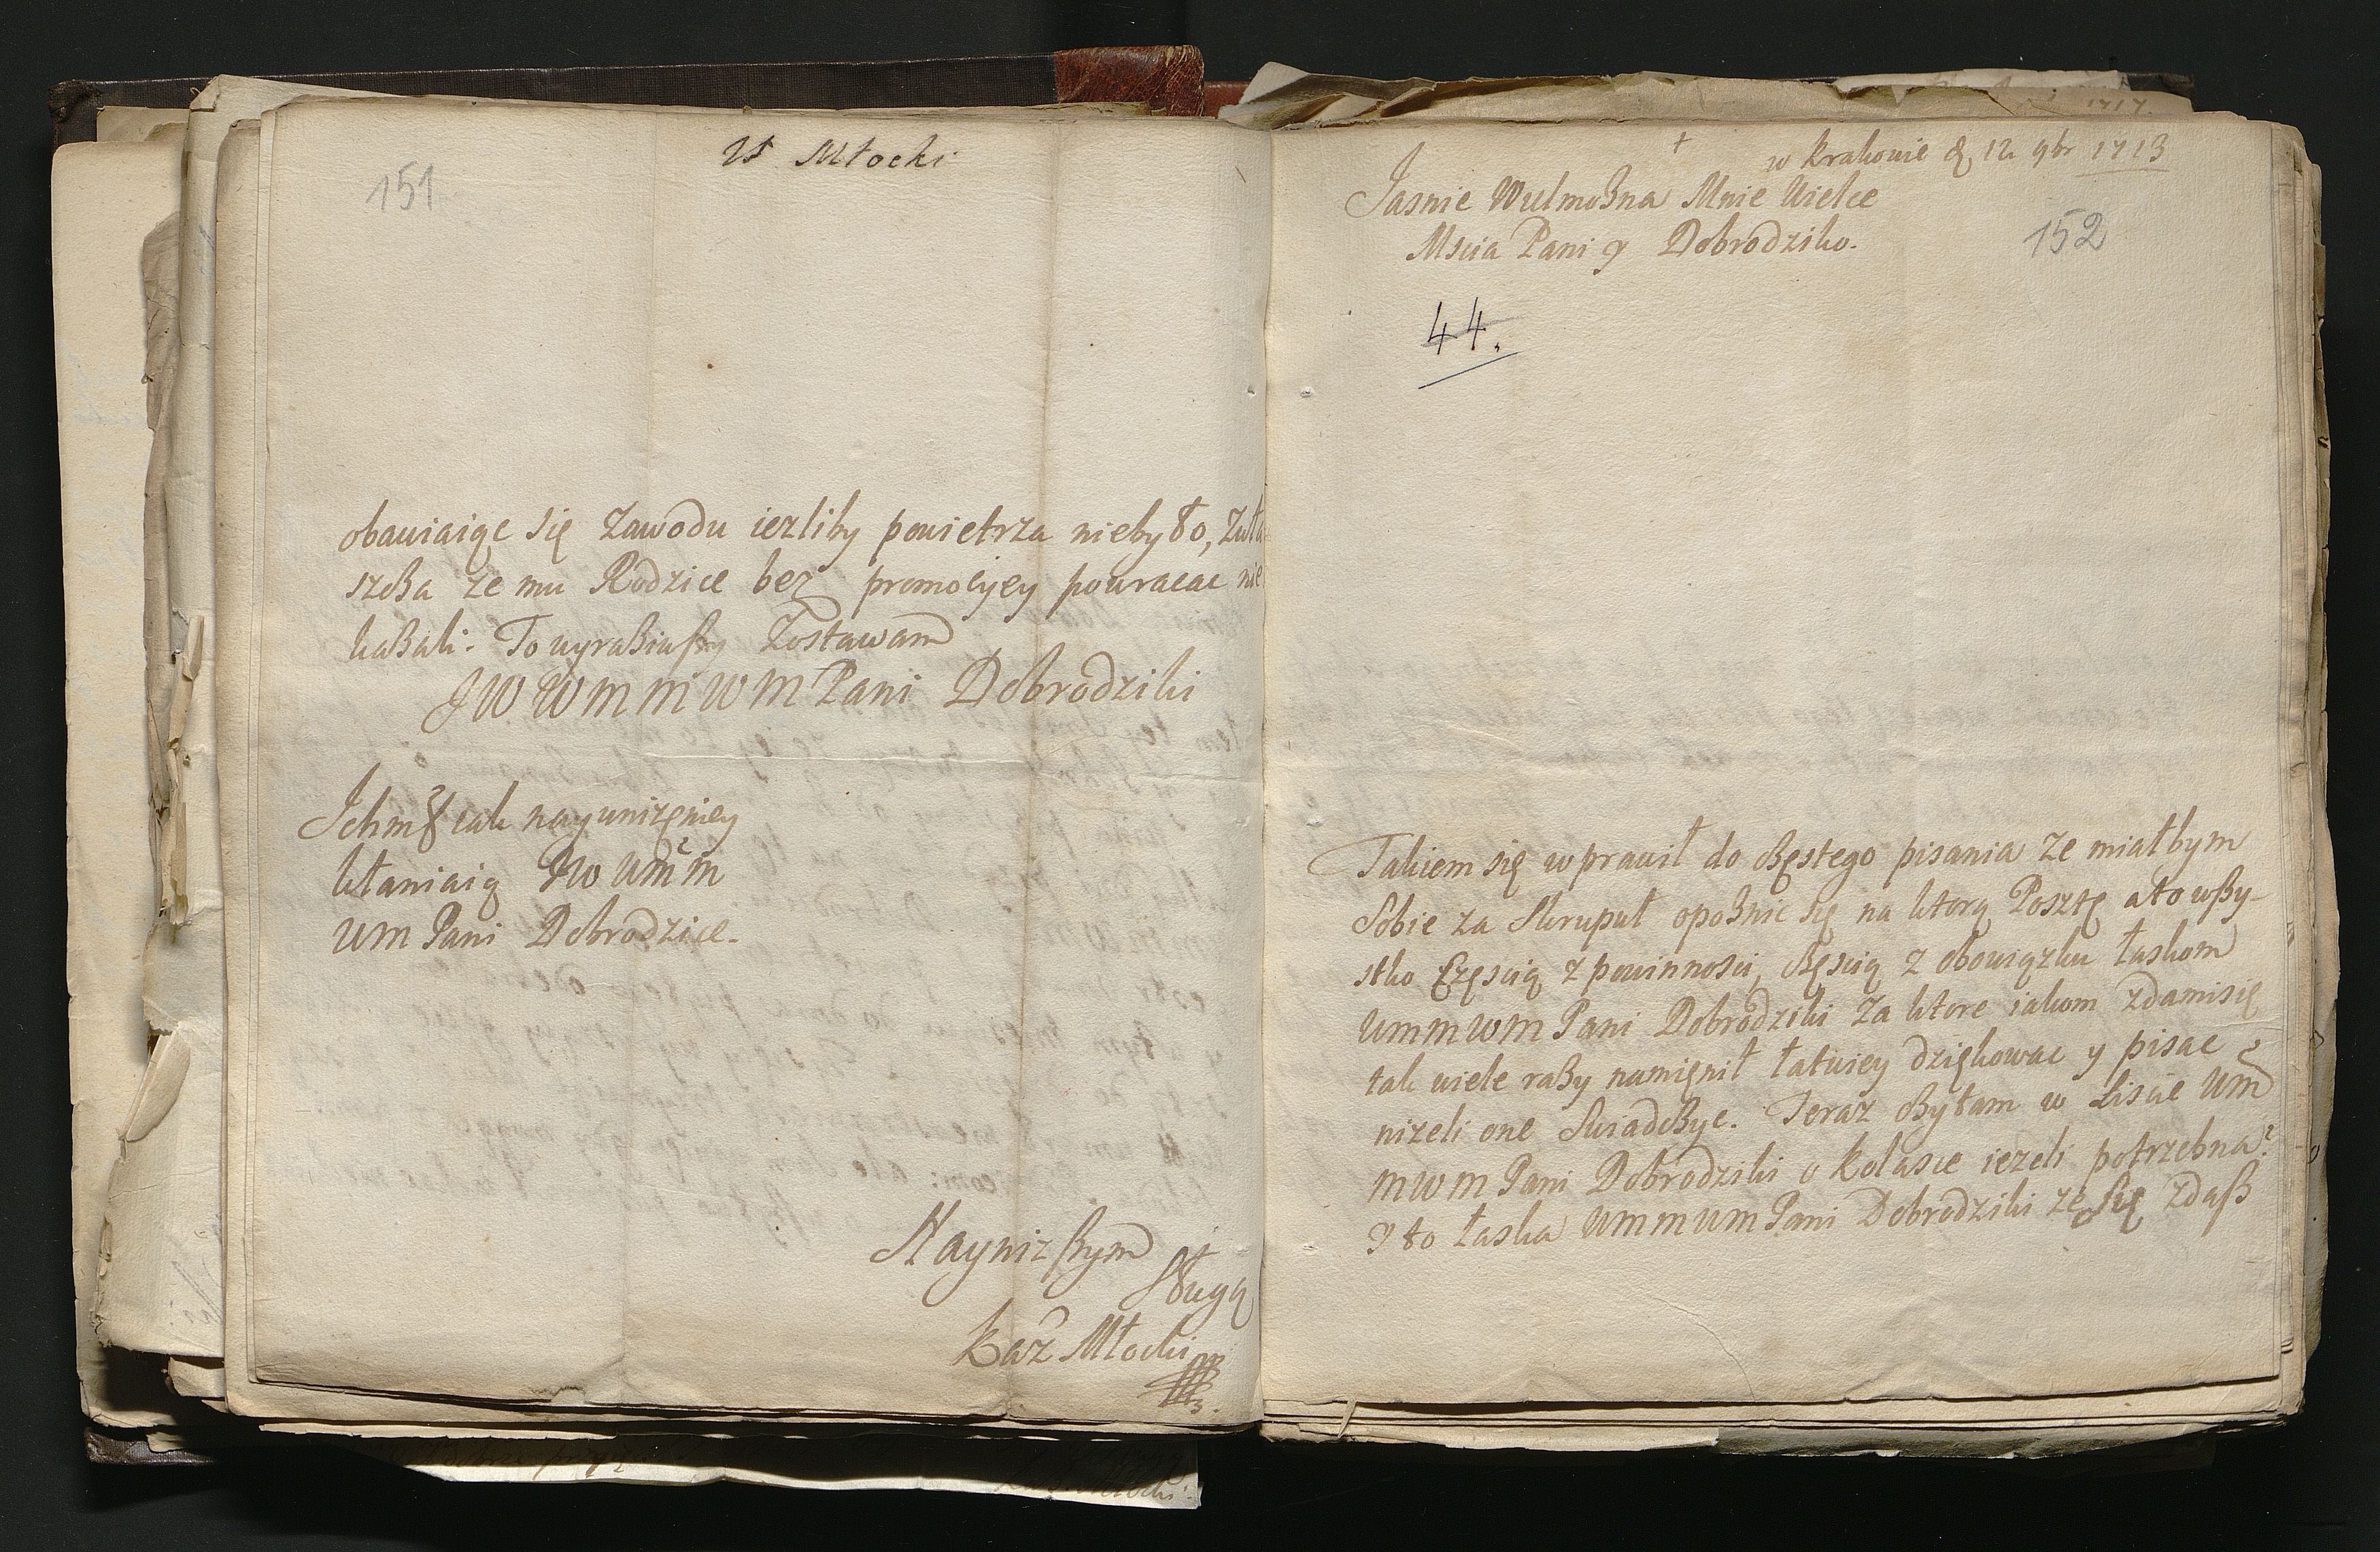 151
Młocki
obawiaiąc się Zawodu iezliby powietrza nieby8o, Zwła
szcza ze mu Rodzice bez promocyey powracac nie
kaBali. To wyraBiwßy Zostawam
JWWMMWMPani Dobrodziki
Ichm iak nayunizęniey
kłaniaią JW WMM
WMPani Dobrodzice.
Nayniz ßym
Sługą
Kaz Młocki
†
w Krakowie d 12 9br 1713
Jasnie WielmoBna Mnie Wielce
Mscia Pani y Dobrodziko.
152
44.
Takiem się wprawił do cBęstego pisania ze miałbym
Sobie za Skrupuł opoBnic się na ktorą Posztę a to wßy-
stko Częscią z powinnosci, cBęscią z obowiązku łaskom
WMMWMPani Dobrodziki Za ktore iakom zdamisię
tak wiele raBy namięnił łatwiey dziękowac y pisac
nizeli one SwiadcByc. Teraz cBytam w Liscie WM
MWMPani Dobrodziki o Kolasce iezeli potrzebna?
y to łaska WMMWMPani Dobrodziki ze się zdaß